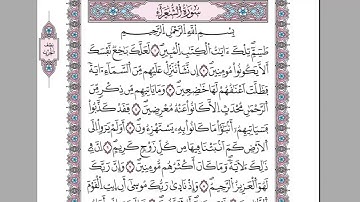 سورة الشعراء
بسم الله الرحمن الرحيم
طسٓمٓ ۝ تِلْكَ ءَايَٰتُ ٱلْكِتَٰبِ ٱلْمُبِينِ ۝ لَعَلَّكَ بَٰخِعٌ نَّفْسَكَ
أَلَّا يَكُونُوا۟ مُومِنِينَ ۝ إِن نَّشَأْ نُنَزِّلْ عَلَيْهِم مِّنَ ٱلسَّمَآءِ ءَايَةً
فَظَلَّتْ أَعْنَٰقُهُمْ لَهَا خَٰضِعِينَ ۝ وَمَا يَاتِيهِم مِّن ذِكْرٍ مِّنَ
ٱلرَّحْمَٰنِ مُحْدَثٍ إِلَّا كَانُوا۟ عَنْهُ مُعْرِضِينَ ۝ فَقَدْ كَذَّبُوا۟
فَسَيَاتِيهِمُۥٓ أَنۢبَٰٓؤُا۟ مَا كَانُوا۟ بِهِۦ يَسْتَهْزِءُونَ ۝ أَوَلَمْ يَرَوِا۟ اِلَى
ٱلْأَرْضِ كَمَ اَنۢبَتْنَا فِيهَا مِن كُلِّ زَوْجٍ كَرِيمٍ ۝ إِنَّ فِى
ذَٰلِكَ لَأٓيَةً وَمَا كَانَ أَكْثَرُهُم مُّومِنِينَ ۝ وَإِنَّ رَبَّكَ
لَهُوَ ٱلْعَزِيزُ ٱلرَّحِيمُ ۝ وَإِذْ نَادَىٰ رَبُّكَ مُوسَىٰٓ أَنِ اِيتِ ٱلْقَوْمَ